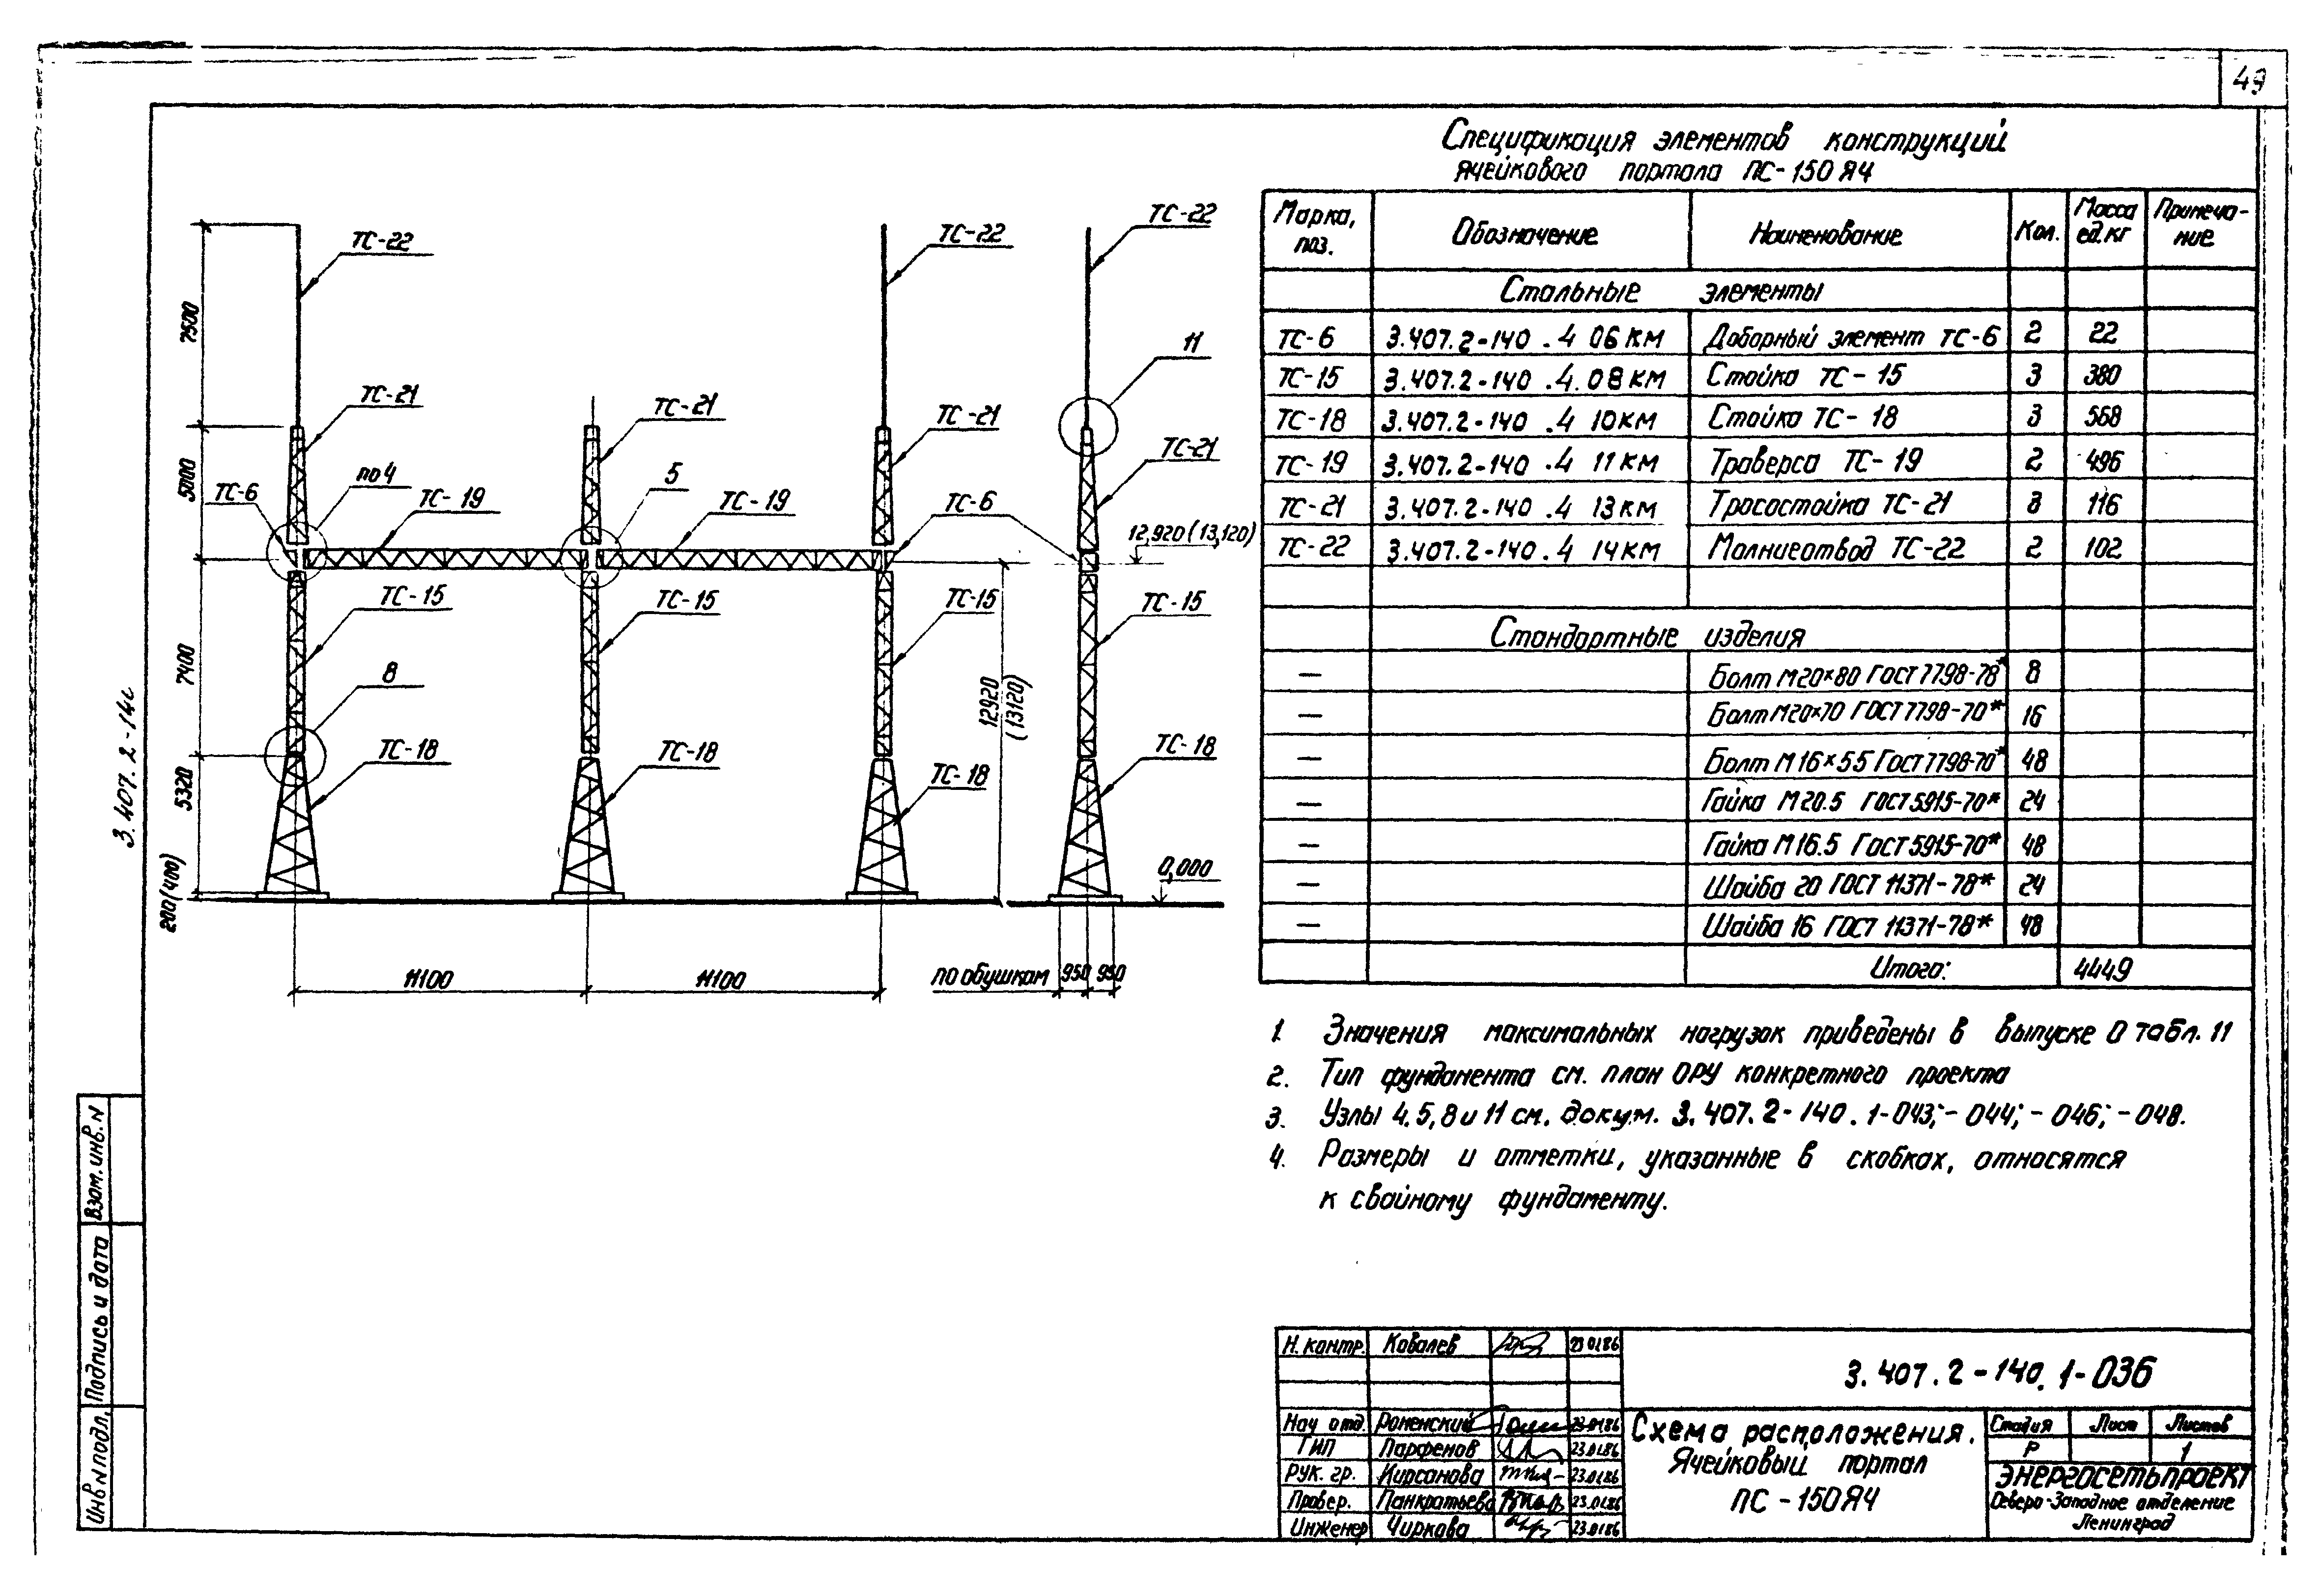 49
Спецификация элементов конструкций
ячейкового портала ПС-150Я4
Марка, поз. Обозначение Наименование Кол. Масса ед.кг Примеча-ние
Стальные элементы
ТС-6 3.407.2-140 .4 06КМ Доборный элемент ТС-6 2 22
ТС-15 3.407.2-140 .4.08КМ Стойка ТС-15 3 380
ТС-18 3.407.2-140 .4 10КМ Стойка ТС-18 3 568
ТС-19 3.407.2-140 .4 11КМ Траверса ТС-19 2 496
ТС-21 3.407.2-140 .4 13КМ Тросостойка ТС-21 3 116
ТС-22 3.407.2-140.4 14КМ Молниеотвод ТС-22 2 102
Стандартные изделия
— Болт М20×80 ГОСТ 7798-78* 8
— Болт М20×70 ГОСТ 7798-70* 16
— Болт М16×55 ГОСТ 7798-70* 48
— Гайка М20.5 ГОСТ 5915-70* 24
— Гайка М16.5 ГОСТ 5915-70* 48
— Шайба 20 ГОСТ 11371-78* 24
— Шайба 16 ГОСТ 11371-78* 48
Итого: 4449
ТС-22
ТС-22
ТС-22
7500
11
ТС-21
ТС-21
ТС-21
ТС-21
5000
по 4
5
ТС-6
ТС-19
ТС-19
ТС-6
12,920 (13,120)
ТС-15
ТС-15
ТС-15
ТС-15
7400
8
12920
(13120)
ТС-18
ТС-18
ТС-18
ТС-18
5320
200(400)
0,000
11100
11100
по обушкам
950
950
3.407.2-14
1. Значения максимальных нагрузок приведены в выпуске 0 табл. 11
2. Тип фундамента см. план ОРУ конкретного проекта
3. Узлы 4, 5, 8 и 11 см. докум. 3.407.2-140.1-043; -044; -046; -048.
4. Размеры и отметки, указанные в скобках, относятся
к свайному фундаменту.
Взам. инв. N
Подпись и дата
Инв N подл.
Н. контр. Ковалев 23.01.86
Нач отд. Роменский 23.01.86
ГИП Парфенов 23.01.86
Рук. гр. Кирсанова 23.01.86
Провер. Панкратьева 23.01.86
Инженер Чиркова 23.01.86
3.407.2-140.1-036
Схема расположения.
Ячейковый портал
ПС-150Я4
Стадия Лист Листов
Р 1
ЭНЕРГОСЕТЬПРОЕКТ
Северо-Западное отделение
Ленинград